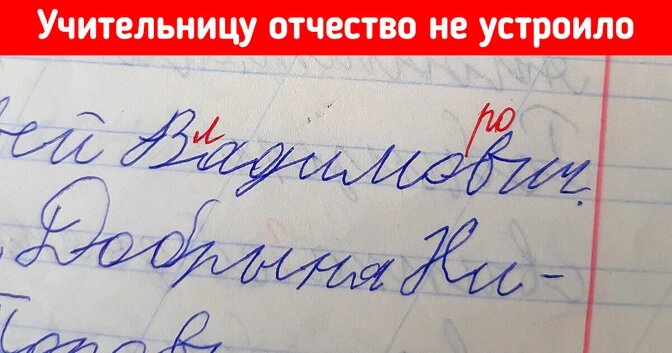 Учительницу отчество не устроило
л ро
Вадимович.
Добрыня Ни-